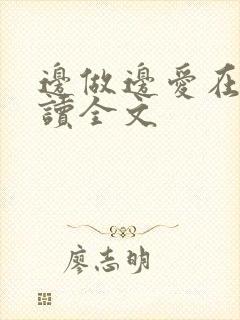 邊做邊愛在
讀全文
廖志明